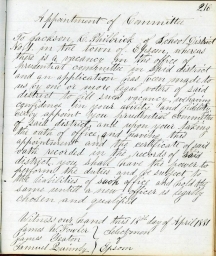 216
Appointment of Committee
To Jackson C. Philbrick of School District
No 4 in the town of Epsom, whereas
there is a vacancy in the office of
Prudential committee in said district
and an application has been made to
us by one or more legal voters of said
district to fill said vacancy, reposing
confidence in your ability and fidelity
hereby appoint you prudential committee
of said district and upon your taking
the oath of office and having this
appointment and the certificate of said
oath recorded in the records of said
district, you shall have the powers to
perform the duties and be subject to
the liabilities of such office and hold the
same until a new officer is legally
chosen and qualified
Witness our hand this 18th day of April 1881
James W. Fowler } Selectmen
James Yeaton } of
Samuel Quimby } Epsom